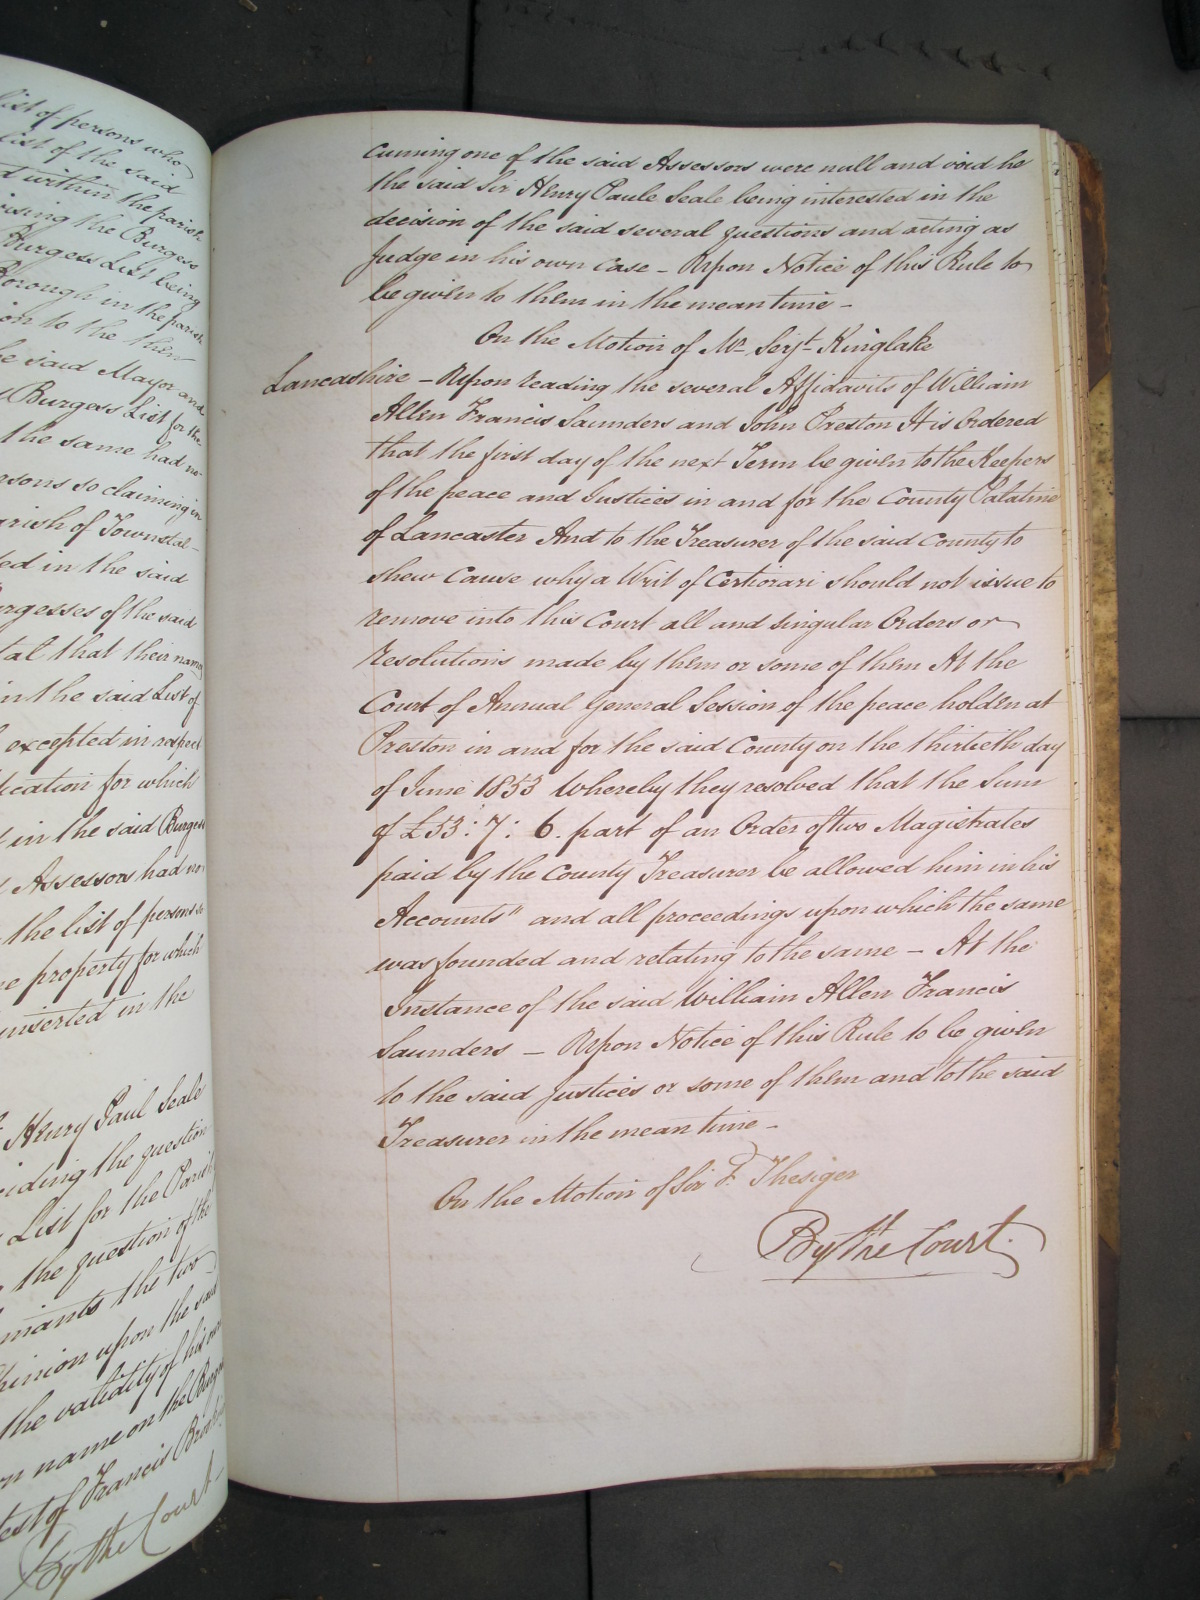 list of persons who
list of the said
within the parish
the Burgess
Burgess List being
Borough in the parish
to the then
said Mayor and
Burgess List for the
the same had
so claiming in
of Townstal
in the said
of the said
that their names
in the said List of
excepted in respect
for which
in the said Burgess
Assessors had
the list of persons
property for which
inserted in the
Henry Paul Seale
the question
List for the Parish
the question of the
the two
upon the said
the validity of his own
name on the Burgess
of Francis
By the Court
cuming one of the said Assessors were null and void he
the said Sir Henry Paule Seale being interested in the
decision of the said several questions and acting as
Judge in his own case – Upon Notice of this Rule to
be given to them in the mean time –
On the Motion of Mr Serjt Kinglake
Lancashire – Upon reading the several Affidavits of William
Allen Francis Saunders and John Preston It is Ordered
that the first day of the next Term be given to the Keepers
of the peace and Justices in and for the County Palatine
of Lancaster And to the Treasurer of the said County to
shew Cause why a Writ of Certiorari should not issue to
remove into this Court all and singular Orders or
resolutions made by them or some of them At the
Court of Annual General Session of the peace holden at
Preston in and for the said County on the thirtieth day
of June 1853 Whereby they resolved that the Sum
of £53 : 7 : 6. part of an Order of two Magistrates
paid by the County Treasurer be allowed him in his
Accounts" and all proceedings upon which the same
was founded and relating to the same – At the
Instance of the said William Allen Francis
Saunders – Upon Notice of this Rule to be given
to the said Justices or some of them and to the said
Treasurer in the mean time –
On the Motion of Sir F. Thesiger
By the Court.